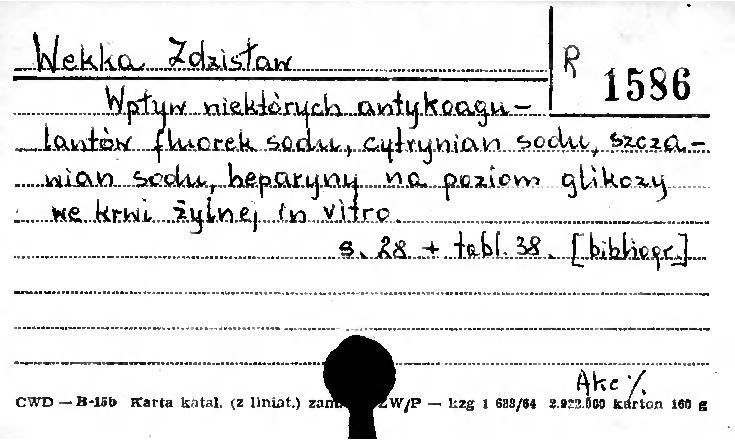 Wekka Zdzisław
R 1586
Wpływ niektórych antykoagu-
lantów fluorek sodu, cytrynian sodu, szcza-
wian sodu, heparyny na poziom glikozy
we krwi żylnej in vitro.
s. 28 + tabl. 38. [bibliogr.]
Akc %
CWD — B-15b Karta katal. (z liniat.) zam. ZW/P — kzg 1 688/64 2.922.000 karton 160 g